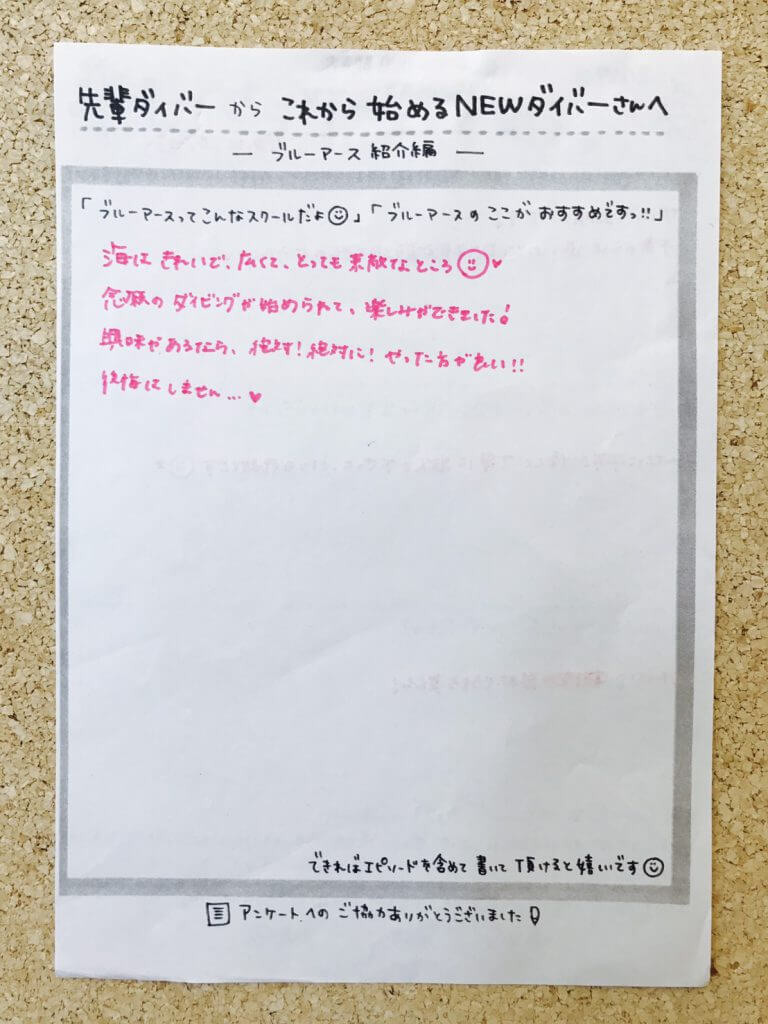 先輩ダイバーから これから 始めるNEWダイバーさんへ
― ブルーアース 紹介編 ―
「ブルーアースってこんなスクールだよ☺」「ブルーアースの ここが おすすめですっ!!」
海は きれいで、広くて、とっても 素敵なところ☺♥
念願の ダイビングが 始められて、楽しみができました!
興味があるなら、絶対!絶対に! やった方が良い!!
後悔はしません…♥
できればエピソードを含めて 書いて 頂けると嬉しいです☺
アンケートへの ご協力ありがとうございました